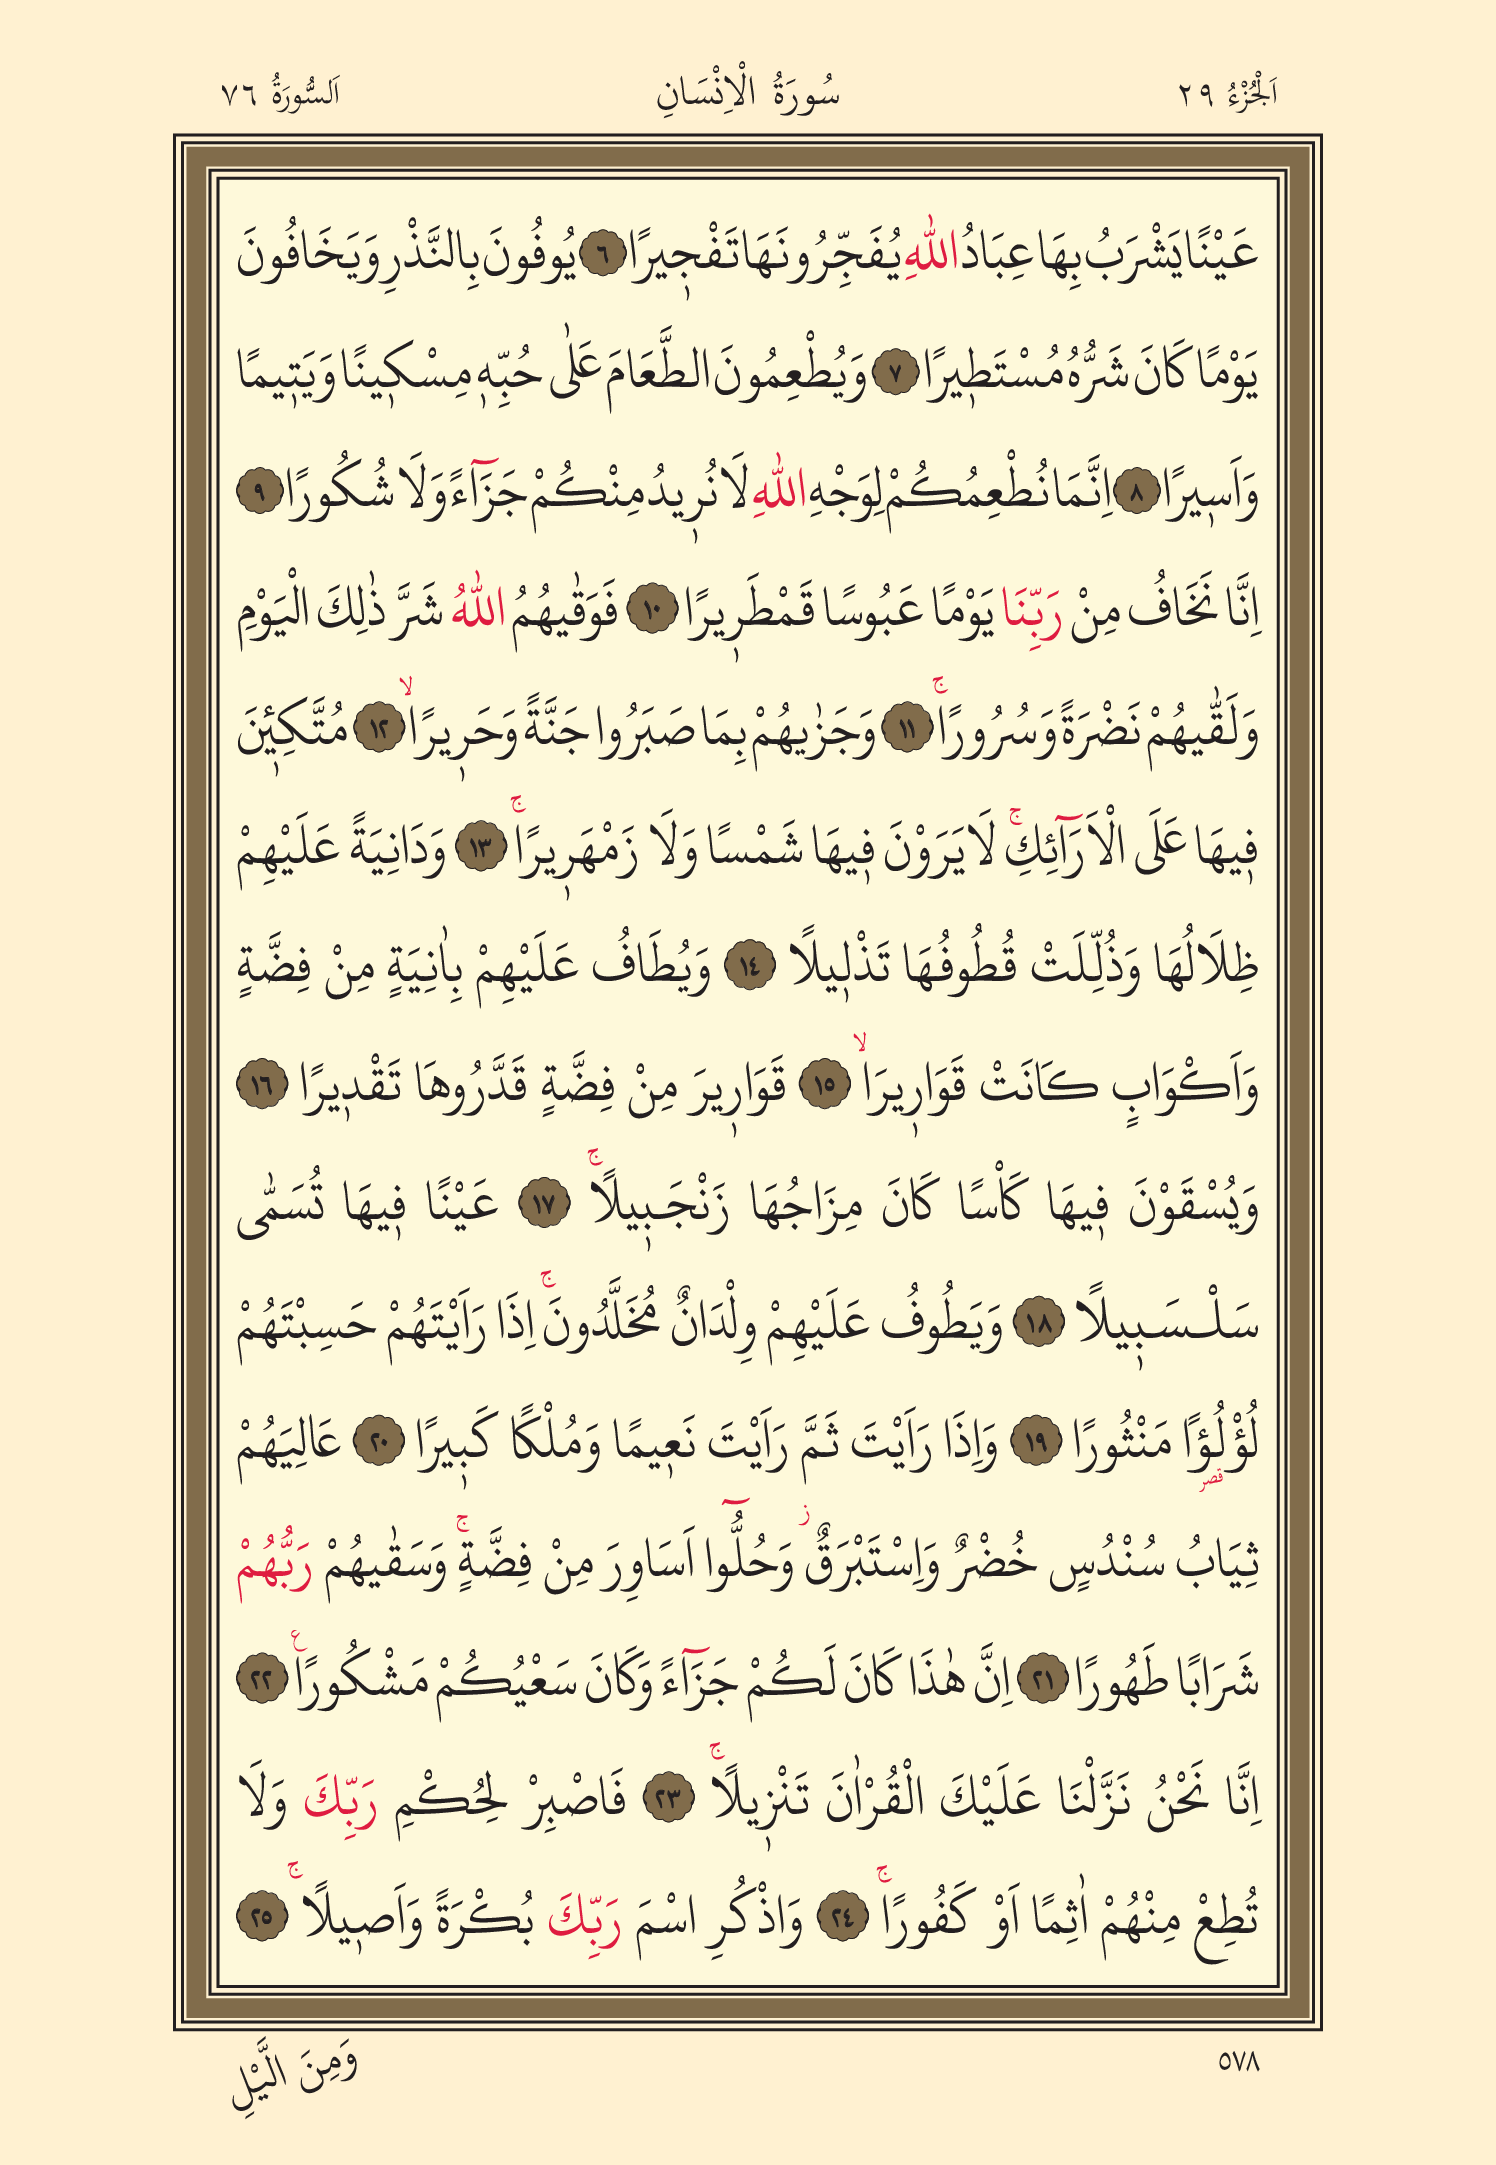 اَلْجُزْءُ ٢٩
سُورَةُ الْاِنْسَانِ
اَلسُّورَةُ ٧٦
عَيْنًا يَشْرَبُ بِهَا عِبَادُ اللّٰهِ يُفَجِّرُونَهَا تَفْج۪يرًا ٦ يُوفُونَ بِالنَّذْرِ وَيَخَافُونَ
يَوْمًا كَانَ شَرُّهُ مُسْتَط۪يرًا ٧ وَيُطْعِمُونَ الطَّعَامَ عَلٰى حُبِّه۪ مِسْك۪ينًا وَيَت۪يمًا
وَاَس۪يرًا ٨ اِنَّمَا نُطْعِمُكُمْ لِوَجْهِ اللّٰهِ لَا نُر۪يدُ مِنْكُمْ جَزَٓاءً وَلَا شُكُورًا ٩
اِنَّا نَخَافُ مِنْ رَبِّنَا يَوْمًا عَبُوسًا قَمْطَر۪يرًا ١٠ فَوَقٰيهُمُ اللّٰهُ شَرَّ ذٰلِكَ الْيَوْمِ
وَلَقّٰيهُمْ نَضْرَةً وَسُرُورًاۚ ١١ وَجَزٰيهُمْ بِمَا صَبَرُوا جَنَّةً وَحَر۪يرًاۙ ١٢ مُتَّكِـ۪ٔينَ
ف۪يهَا عَلَى الْاَرَٓائِكِۚ لَا يَرَوْنَ ف۪يهَا شَمْسًا وَلَا زَمْهَر۪يرًاۚ ١٣ وَدَانِيَةً عَلَيْهِمْ
ظِلَالُهَا وَذُلِّلَتْ قُطُوفُهَا تَذْل۪يلًا ١٤ وَيُطَافُ عَلَيْهِمْ بِاٰنِيَةٍ مِنْ فِضَّةٍ
وَاَكْوَابٍ كَانَتْ قَوَار۪يرَاۙ ١٥ قَوَار۪يرَ مِنْ فِضَّةٍ قَدَّرُوهَا تَقْد۪يرًا ١٦
وَيُسْقَوْنَ ف۪يهَا كَأْسًا كَانَ مِزَاجُهَا زَنْجَب۪يلًاۚ ١٧ عَيْنًا ف۪يهَا تُسَمّٰى
سَلْسَب۪يلًا ١٨ وَيَطُوفُ عَلَيْهِمْ وِلْدَانٌ مُخَلَّدُونَۚ اِذَا رَاَيْتَهُمْ حَسِبْتَهُمْ
لُؤْلُؤًا مَنْثُورًا ١٩ وَاِذَا رَاَيْتَ ثَمَّ رَاَيْتَ نَع۪يمًا وَمُلْكًا كَب۪يرًا ٢٠ عَالِيَهُمْ
قصر
ثِيَابُ سُنْدُسٍ خُضْرٌ وَاِسْتَبْرَقٌۘ وَحُلُّٓوا اَسَاوِرَ مِنْ فِضَّةٍۚ وَسَقٰيهُمْ رَبُّهُمْ
شَرَابًا طَهُورًا ٢١ اِنَّ هٰذَا كَانَ لَكُمْ جَزَٓاءً وَكَانَ سَعْيُكُمْ مَشْكُورًا ع ٢٢
اِنَّا نَحْنُ نَزَّلْنَا عَلَيْكَ الْقُرْاٰنَ تَنْز۪يلًاۚ ٢٣ فَاصْبِرْ لِحُكْمِ رَبِّكَ وَلَا
تُطِعْ مِنْهُمْ اٰثِمًا اَوْ كَفُورًاۚ ٢٤ وَاذْكُرِ اسْمَ رَبِّكَ بُكْرَةً وَاَص۪يلًاۚ ٢٥
٥٧٨
وَمِنَ الَّيْلِ